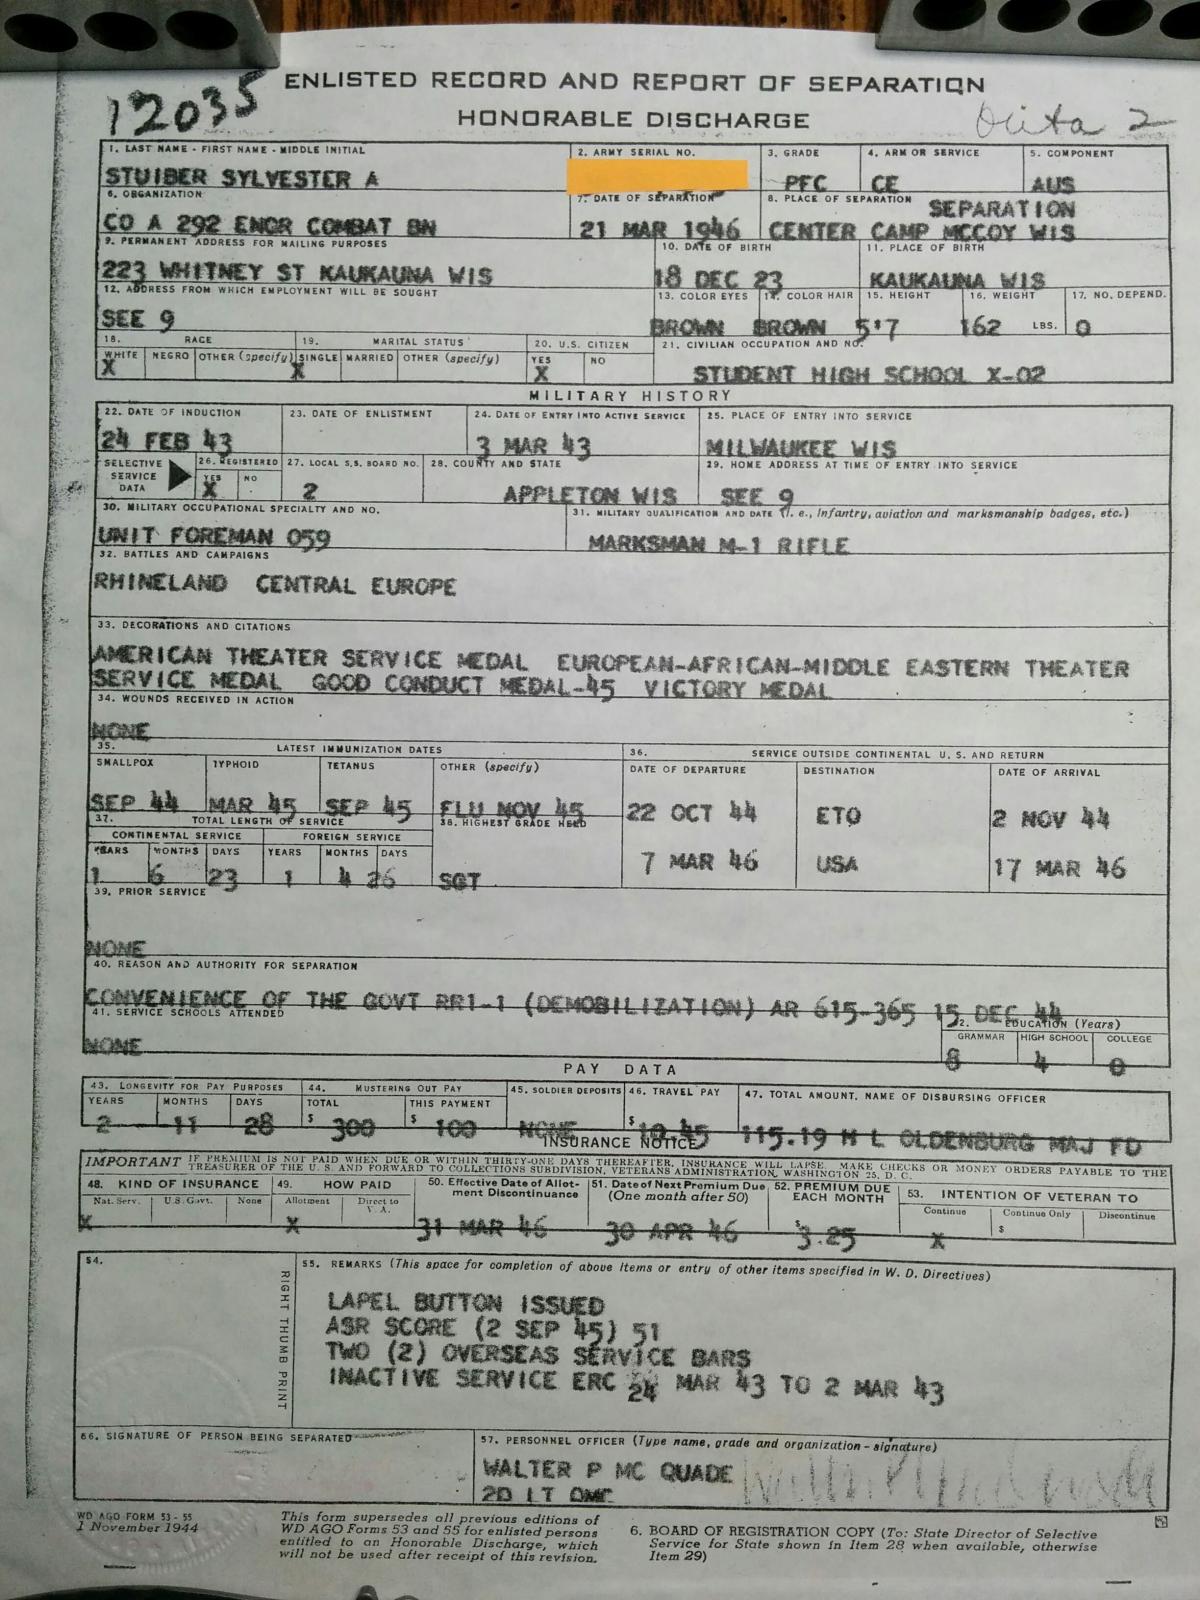 ENLISTED RECORD AND REPORT OF SEPARATION
12035
HONORABLE DISCHARGE
2
1. LAST NAME - FIRST NAME - MIDDLE INITIAL 2. ARMY SERIAL NO. 3. GRADE 4. ARM OR SERVICE 5. COMPONENT
STUIBER SYLVESTER A PFC CE AUS
6. ORGANIZATION 7. DATE OF SEPARATION 8. PLACE OF SEPARATION SEPARATION
CO A 292 ENGR COMBAT BN 21 MAR 1946 CENTER CAMP MCCOY WIS
9. PERMANENT ADDRESS FOR MAILING PURPOSES 10. DATE OF BIRTH 11. PLACE OF BIRTH
223 WHITNEY ST KAUKAUNA WIS 18 DEC 23 KAUKAUNA WIS
12. ADDRESS FROM WHICH EMPLOYMENT WILL BE SOUGHT 13. COLOR EYES 14. COLOR HAIR 15. HEIGHT 16. WEIGHT 17. NO. DEPEND.
SEE 9 BROWN BROWN 5'7 162 LBS. 0
18. RACE 19. MARITAL STATUS 20. U.S. CITIZEN 21. CIVILIAN OCCUPATION AND NO.
WHITE NEGRO OTHER (specify) SINGLE MARRIED OTHER (specify) YES NO
X X X STUDENT HIGH SCHOOL X-02
MILITARY HISTORY
22. DATE OF INDUCTION 23. DATE OF ENLISTMENT 24. DATE OF ENTRY INTO ACTIVE SERVICE 25. PLACE OF ENTRY INTO SERVICE
24 FEB 43 3 MAR 43 MILWAUKEE WIS
SELECTIVE SERVICE DATA 26. REGISTERED YES NO 27. LOCAL S.S. BOARD NO. 28. COUNTY AND STATE 29. HOME ADDRESS AT TIME OF ENTRY INTO SERVICE
X 2 APPLETON WIS SEE 9
30. MILITARY OCCUPATIONAL SPECIALTY AND NO. 31. MILITARY QUALIFICATION AND DATE (i. e., infantry, aviation and marksmanship badges, etc.)
UNIT FOREMAN 059 MARKSMAN M-1 RIFLE
32. BATTLES AND CAMPAIGNS
RHINELAND CENTRAL EUROPE
33. DECORATIONS AND CITATIONS
AMERICAN THEATER SERVICE MEDAL EUROPEAN-AFRICAN-MIDDLE EASTERN THEATER
SERVICE MEDAL GOOD CONDUCT MEDAL-45 VICTORY MEDAL
34. WOUNDS RECEIVED IN ACTION
NONE
35. LATEST IMMUNIZATION DATES 36. SERVICE OUTSIDE CONTINENTAL U. S. AND RETURN
SMALLPOX TYPHOID TETANUS OTHER (specify) DATE OF DEPARTURE DESTINATION DATE OF ARRIVAL
SEP 44 MAR 45 SEP 45 FLU NOV 45 22 OCT 44 ETO 2 NOV 44
37. TOTAL LENGTH OF SERVICE 38. HIGHEST GRADE HELD
CONTINENTAL SERVICE FOREIGN SERVICE
YEARS MONTHS DAYS YEARS MONTHS DAYS 7 MAR 46 USA 17 MAR 46
1 6 23 1 4 26 SGT
39. PRIOR SERVICE
NONE
40. REASON AND AUTHORITY FOR SEPARATION
CONVENIENCE OF THE GOVT RR1-1 (DEMOBILIZATION) AR 615-365 15 DEC 44
41. SERVICE SCHOOLS ATTENDED 42. EDUCATION (Years)
NONE GRAMMAR HIGH SCHOOL COLLEGE
8 4 0
PAY DATA
43. LONGEVITY FOR PAY PURPOSES 44. MUSTERING OUT PAY 45. SOLDIER DEPOSITS 46. TRAVEL PAY 47. TOTAL AMOUNT, NAME OF DISBURSING OFFICER
YEARS MONTHS DAYS TOTAL THIS PAYMENT
2 11 28 $ 300 $ 100 NONE $ 10.45 115.19 H L OLDENBURG MAJ FD
INSURANCE NOTICE
IMPORTANT IF PREMIUM IS NOT PAID WHEN DUE OR WITHIN THIRTY-ONE DAYS THEREAFTER, INSURANCE WILL LAPSE. MAKE CHECKS OR MONEY ORDERS PAYABLE TO THE
TREASURER OF THE U. S. AND FORWARD TO COLLECTIONS SUBDIVISION, VETERANS ADMINISTRATION, WASHINGTON 25, D. C.
48. KIND OF INSURANCE 49. HOW PAID 50. Effective Date of Allotment Discontinuance 51. Date of Next Premium Due (One month after 50) 52. PREMIUM DUE EACH MONTH 53. INTENTION OF VETERAN TO
Nat. Serv. U.S. Govt. None Allotment Direct to V. A. Continue Continue Only Discontinue
X X 31 MAR 46 30 APR 46 $3.25 X $
54. 55. REMARKS (This space for completion of above items or entry of other items specified in W. D. Directives)
RIGHT THUMB PRINT
LAPEL BUTTON ISSUED
ASR SCORE (2 SEP 45) 51
TWO (2) OVERSEAS SERVICE BARS
INACTIVE SERVICE ERC 24 MAR 43 TO 2 MAR 43
56. SIGNATURE OF PERSON BEING SEPARATED 57. PERSONNEL OFFICER (Type name, grade and organization - signature)
WALTER P MC QUADE
2D LT QMC
WD AGO FORM 53 - 55
1 November 1944
This form supersedes all previous editions of
WD AGO Forms 53 and 55 for enlisted persons
entitled to an Honorable Discharge, which
will not be used after receipt of this revision.
6. BOARD OF REGISTRATION COPY (To: State Director of Selective
Service for State shown in Item 28 when available, otherwise
Item 29)